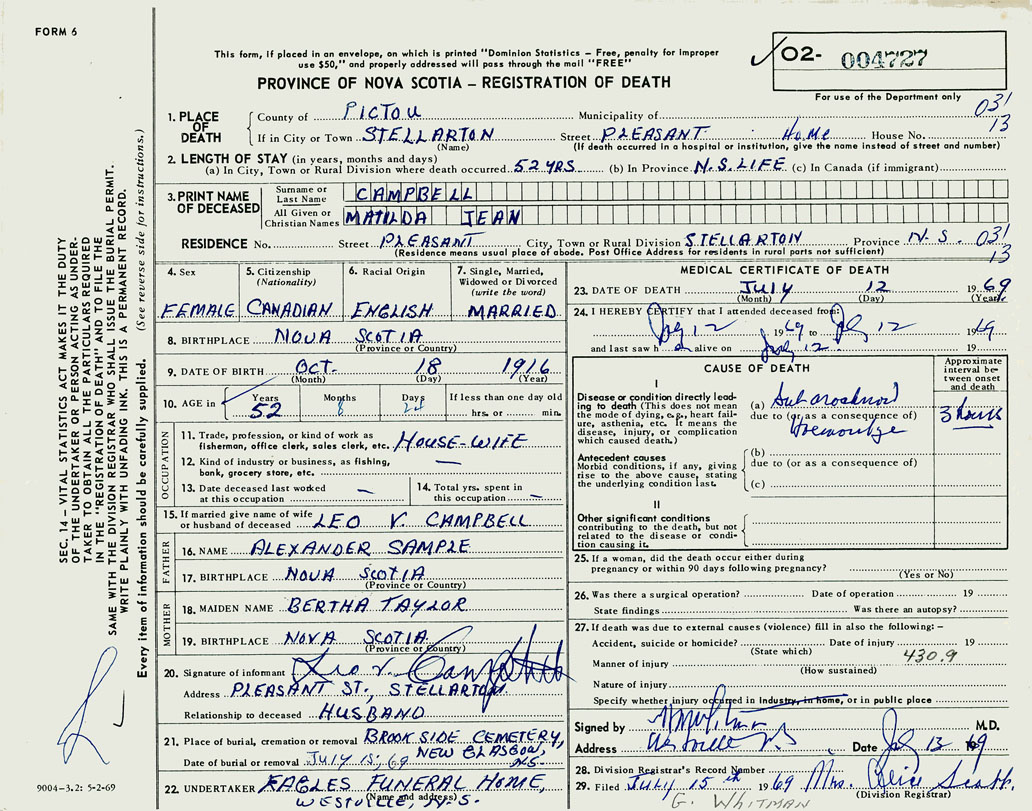 FORM 6
This form, if placed in an envelope, on which is printed "Dominion Statistics – Free, penalty for improper
use $50," and properly addressed will pass through the mail "FREE"
PROVINCE OF NOVA SCOTIA – REGISTRATION OF DEATH
O2- 004727
For use of the Department only
031
13
1. PLACE OF DEATH
County of PICTOU Municipality of
If in City or Town STELLARTON Street PLEASANT HOME House No.
(Name) (If death occurred in a hospital or institution, give the name instead of street and number)
2. LENGTH OF STAY (in years, months and days)
(a) In City, Town or Rural Division where death occurred 52 YRS (b) In Province N.S. LIFE (c) In Canada (if immigrant)
3. PRINT NAME OF DECEASED
Surname or Last Name CAMPBELL
All Given or Christian Names MATILDA JEAN
RESIDENCE No. Street PLEASANT City, Town or Rural Division STELLARTON Province N.S. 031
(Residence means usual place of abode. Post Office Address for residents in rural parts not sufficient) 13
4. Sex
FEMALE
5. Citizenship
(Nationality)
CANADIAN
6. Racial Origin
ENGLISH
7. Single, Married,
Widowed or Divorced
(write the word)
MARRIED
8. BIRTHPLACE NOVA SCOTIA
(Province or Country)
9. DATE OF BIRTH OCT. 18 1916
(Month) (Day) (Year)
10. AGE in Years Months Days If less than one day old
52 8 24 hrs. or min.
OCCUPATION
11. Trade, profession, or kind of work as
fishermen, office clerk, sales clerk, etc. HOUSE-WIFE
12. Kind of industry or business, as fishing, —
bank, grocery store, etc.
13. Date deceased last worked
at this occupation —
14. Total yrs. spent in
this occupation —
15. If married give name of wife
or husband of deceased LEO V. CAMPBELL
FATHER
16. NAME ALEXANDER SAMPLE
17. BIRTHPLACE NOVA SCOTIA
(Province or Country)
MOTHER
18. MAIDEN NAME BERTHA TAYLOR
19. BIRTHPLACE NOVA SCOTIA
(Province or Country)
20. Signature of informant Leo V. Campbell
Address PLEASANT ST., STELLARTON
Relationship to deceased HUSBAND
21. Place of burial, cremation or removal BROOKSIDE CEMETERY,
NEW GLASGOW,
Date of burial or removal JULY 15, 69 N.S.
22. UNDERTAKER EAGLES FUNERAL HOME,
(Name and address)
WESTVILLE, N.S.
MEDICAL CERTIFICATE OF DEATH
23. DATE OF DEATH JULY 12 1969
(Month) (Day) (Year)
24. I HEREBY CERTIFY that I attended deceased from:
July 12 1969 to July 12 1969
and last saw h alive on July 12 19
CAUSE OF DEATH
Approximate interval between onset and death
I
Disease or condition directly leading
to death (This does not mean
the mode of dying, e.g., heart failure,
asthenia, etc. It means the
disease, injury, or complication
which caused death.)
(a) Subarachnoid
due to (or as a consequence of)
Hemorrhage
3 hours
Antecedent causes
Morbid conditions, if any, giving
rise to the above cause, stating
the underlying condition last.
(b)
due to (or as a consequence of)
(c)
II
Other significant conditions
contributing to the death, but not
related to the disease or condition
causing it.
25. If a woman, did the death occur either during
pregnancy or within 90 days following pregnancy?
(Yes or No)
26. Was there a surgical operation? Date of operation 19
State findings Was there an autopsy?
27. If death was due to external causes (violence) fill in also the following: –
Accident, suicide or homicide? Date of injury 19
(State which)
Manner of injury 430.9
(How sustained)
Nature of injury
Specify whether injury occurred in industry, in home, or in public place
Signed by M.D.
Address Westville N.S. Date July 13 69
28. Division Registrar's Record Number
29. Filed JULY 15th 1969 Mrs.
(Division Registrar)
G. WHITMAN
SEC. 14 – VITAL STATISTICS ACT MAKES IT THE DUTY
OF THE UNDERTAKER OR PERSON ACTING AS UNDERTAKER
TO OBTAIN ALL THE PARTICULARS REQUIRED
IN THE "REGISTRATION OF DEATH" AND TO FILE THE
SAME WITH THE DIVISION REGISTRAR WHO SHALL ISSUE THE BURIAL PERMIT.
WRITE PLAINLY WITH UNFADING INK. THIS IS A PERMANENT RECORD.
Every item of information should be carefully supplied. (See reverse side for instructions.)
9004-3.2: 5-2-69